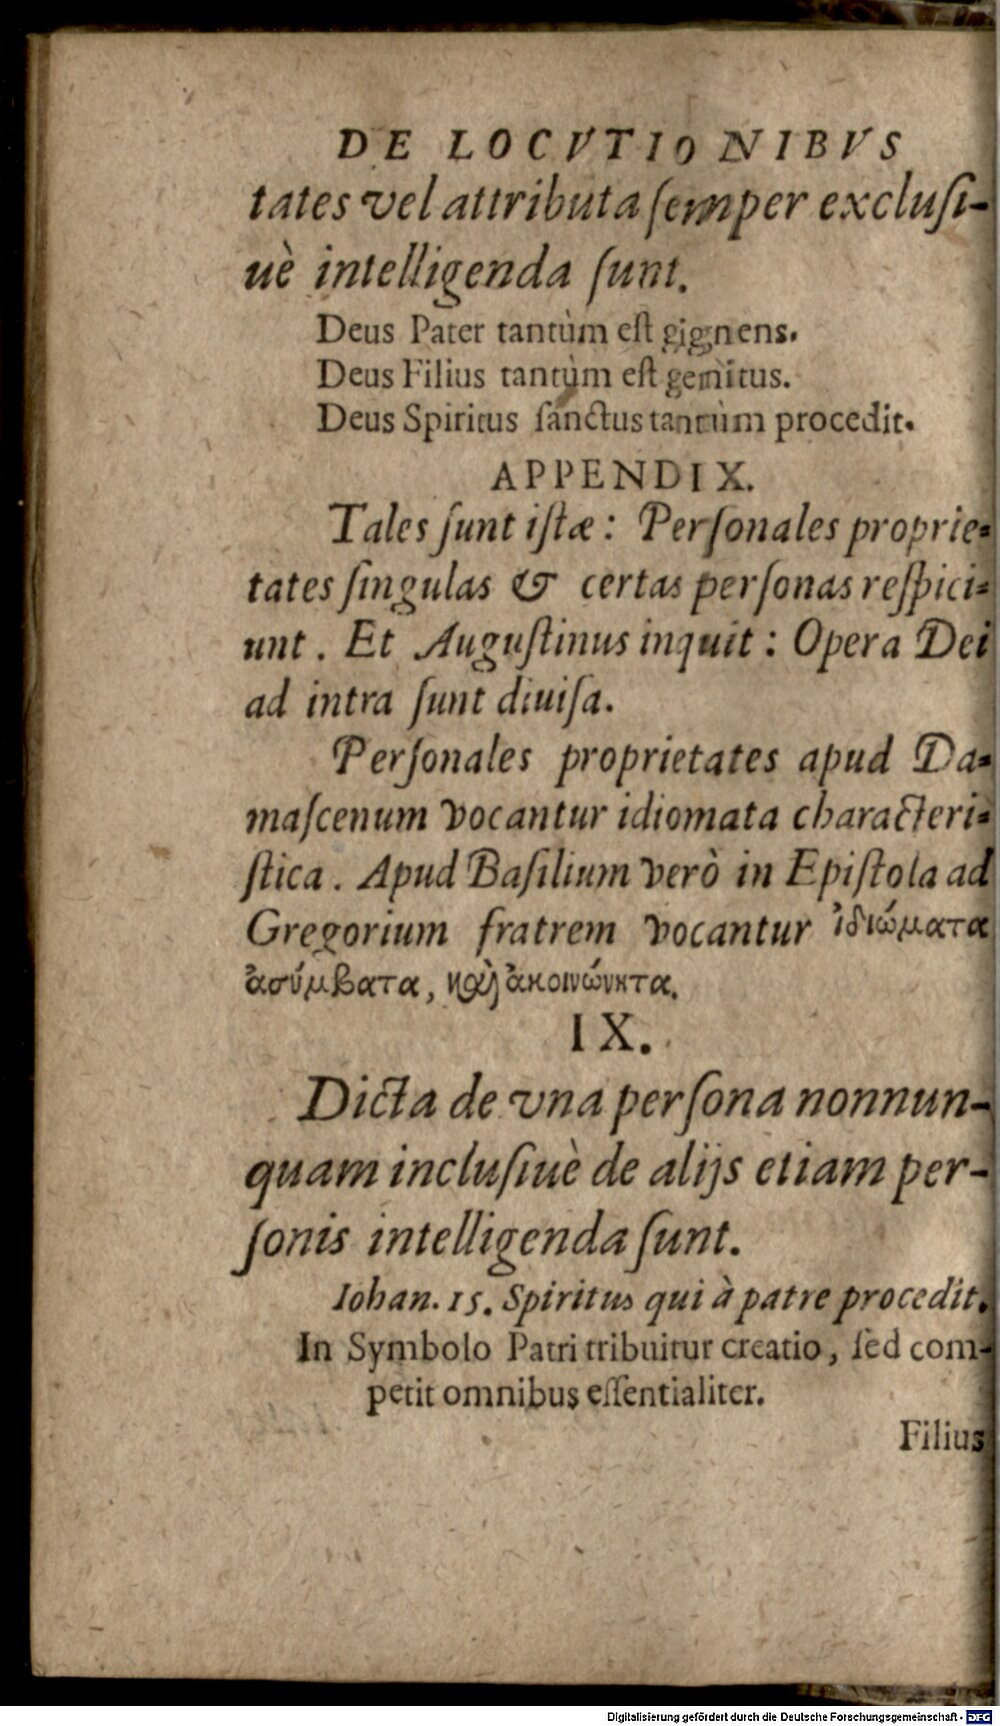 DE LOCVTIONIBVS
tates vel attributa ſemper excluſi-
uè intelligenda ſunt.
Deus Pater tantùm eſt gignens.
Deus Filius tantùm eſt genitus.
Deus Spiritus ſanctus tantùm procedit.
APPENDIX.
Tales ſunt iſtæ: Perſonales proprie-
tates ſingulas & certas perſonas reſpici-
unt. Et Auguſtinus inquit: Opera Dei
ad intra ſunt diuiſa.
Perſonales proprietates apud Da-
maſcenum vocantur idiomata characteri-
ſtica. Apud Baſilium verò in Epiſtola ad
Gregorium fratrem vocantur ἰδιώματα
ἀσύμβατα, καὶ ἀκοινώνητα.
IX.
Dicta de vna perſona nonnun-
quam incluſiuè de alijs etiam per-
ſonis intelligenda ſunt.
Iohan. 15. Spiritus qui à patre procedit.
In Symbolo Patri tribuitur creatio, ſed com-
petit omnibus eſſentialiter.
Filius
Digitalisierung gefördert durch die Deutsche Forschungsgemeinschaft - DFG